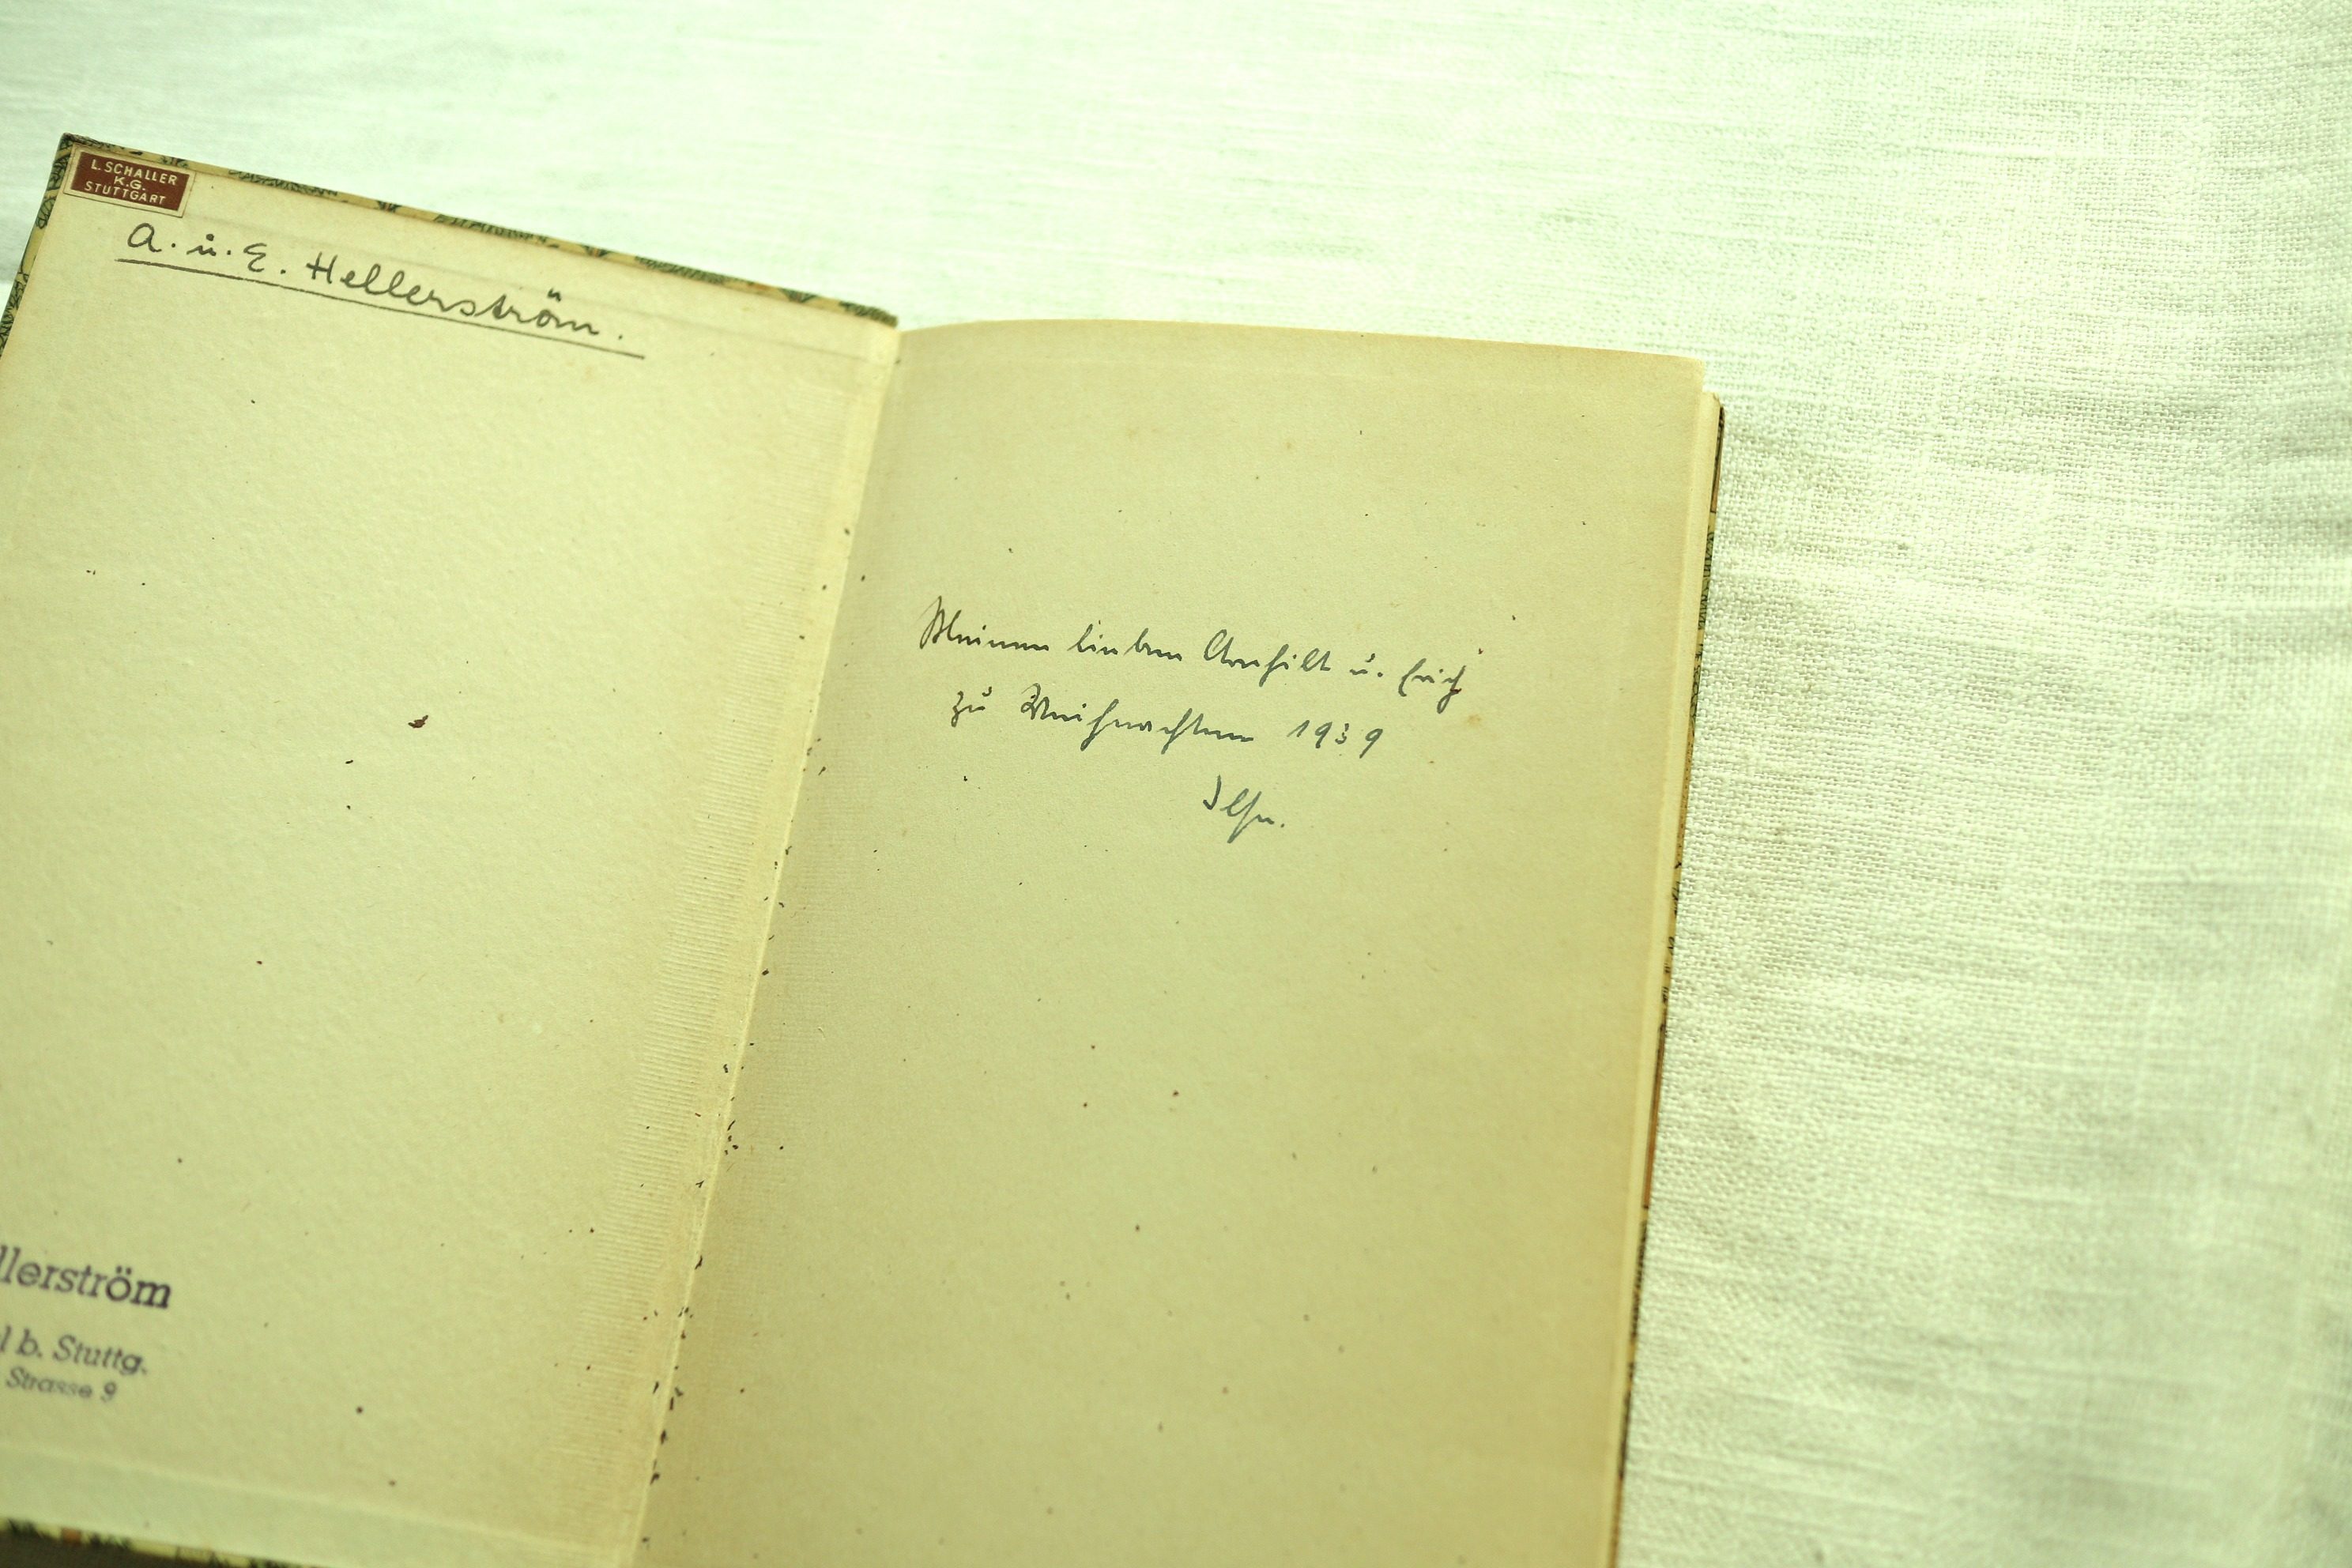 L. SCHALLER
K.G.
STUTTGART
A. u. E. Hellerström.
llerström
l b. Stuttg.
Strasse 9
Meinen lieben u. Erich
zu Weihnachten 1939
Ilse.